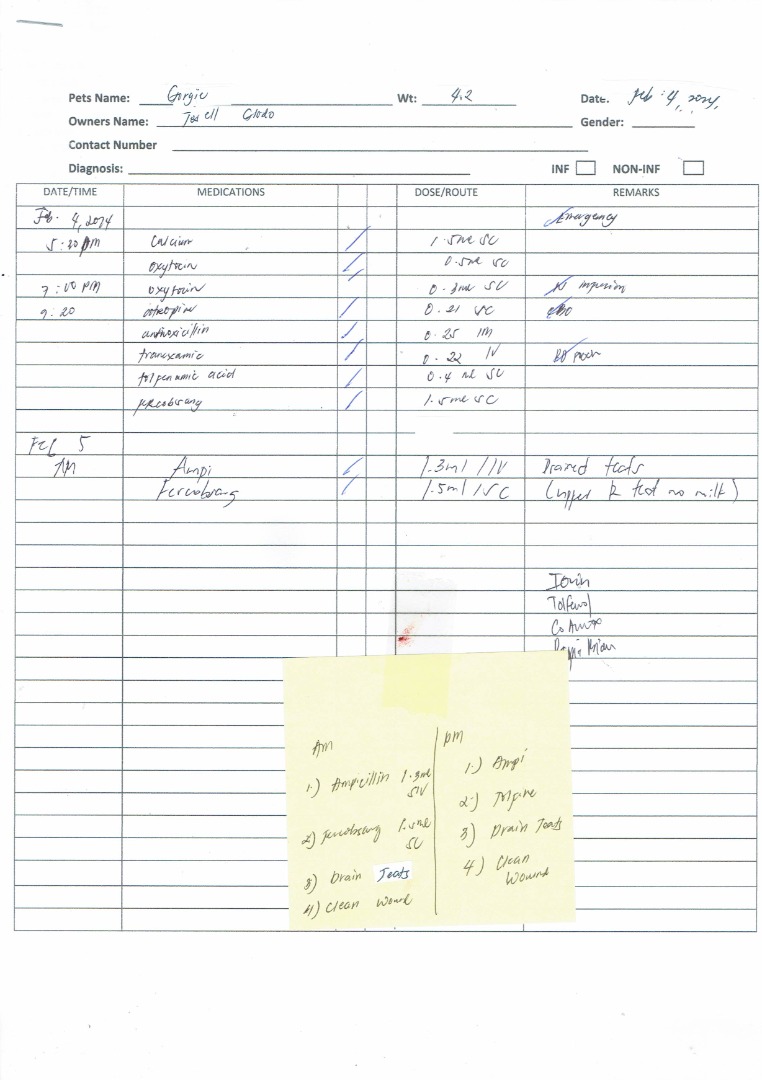 Pets Name: Gorgie Wt: 4.2 Date. Feb 4, 2024,
Owners Name:
Gender:
Contact Number
Diagnosis: INF NON-INF
DATE/TIME MEDICATIONS DOSE/ROUTE REMARKS
Feb. 4, 2024 Emergency
5:30 PM Calcium / 1.5ml SC
oxytocin / 0.5ml SC
7:00 PM oxytocin / 0.3ml SC
9:20 / 0.21 SC
/ 0.25 IM
tranexamic / 0.22 IV
acid / 0.4 ml SC
/ 1.5ml SC
Feb 5
AM Ampi / 1.3ml / IV Drained teats
Fercobsang / 1.5ml / SC (upper R teat no milk)
Tolfenol
Co Amox
AM
1.) Ampicillin 1.3ml
SIV
2) Fercobsang 1.5ml
SC
3) Drain Teats
4) Clean Wound
PM
1.) Ampi
2.)
3) Drain Teats
4) Clean
Wound